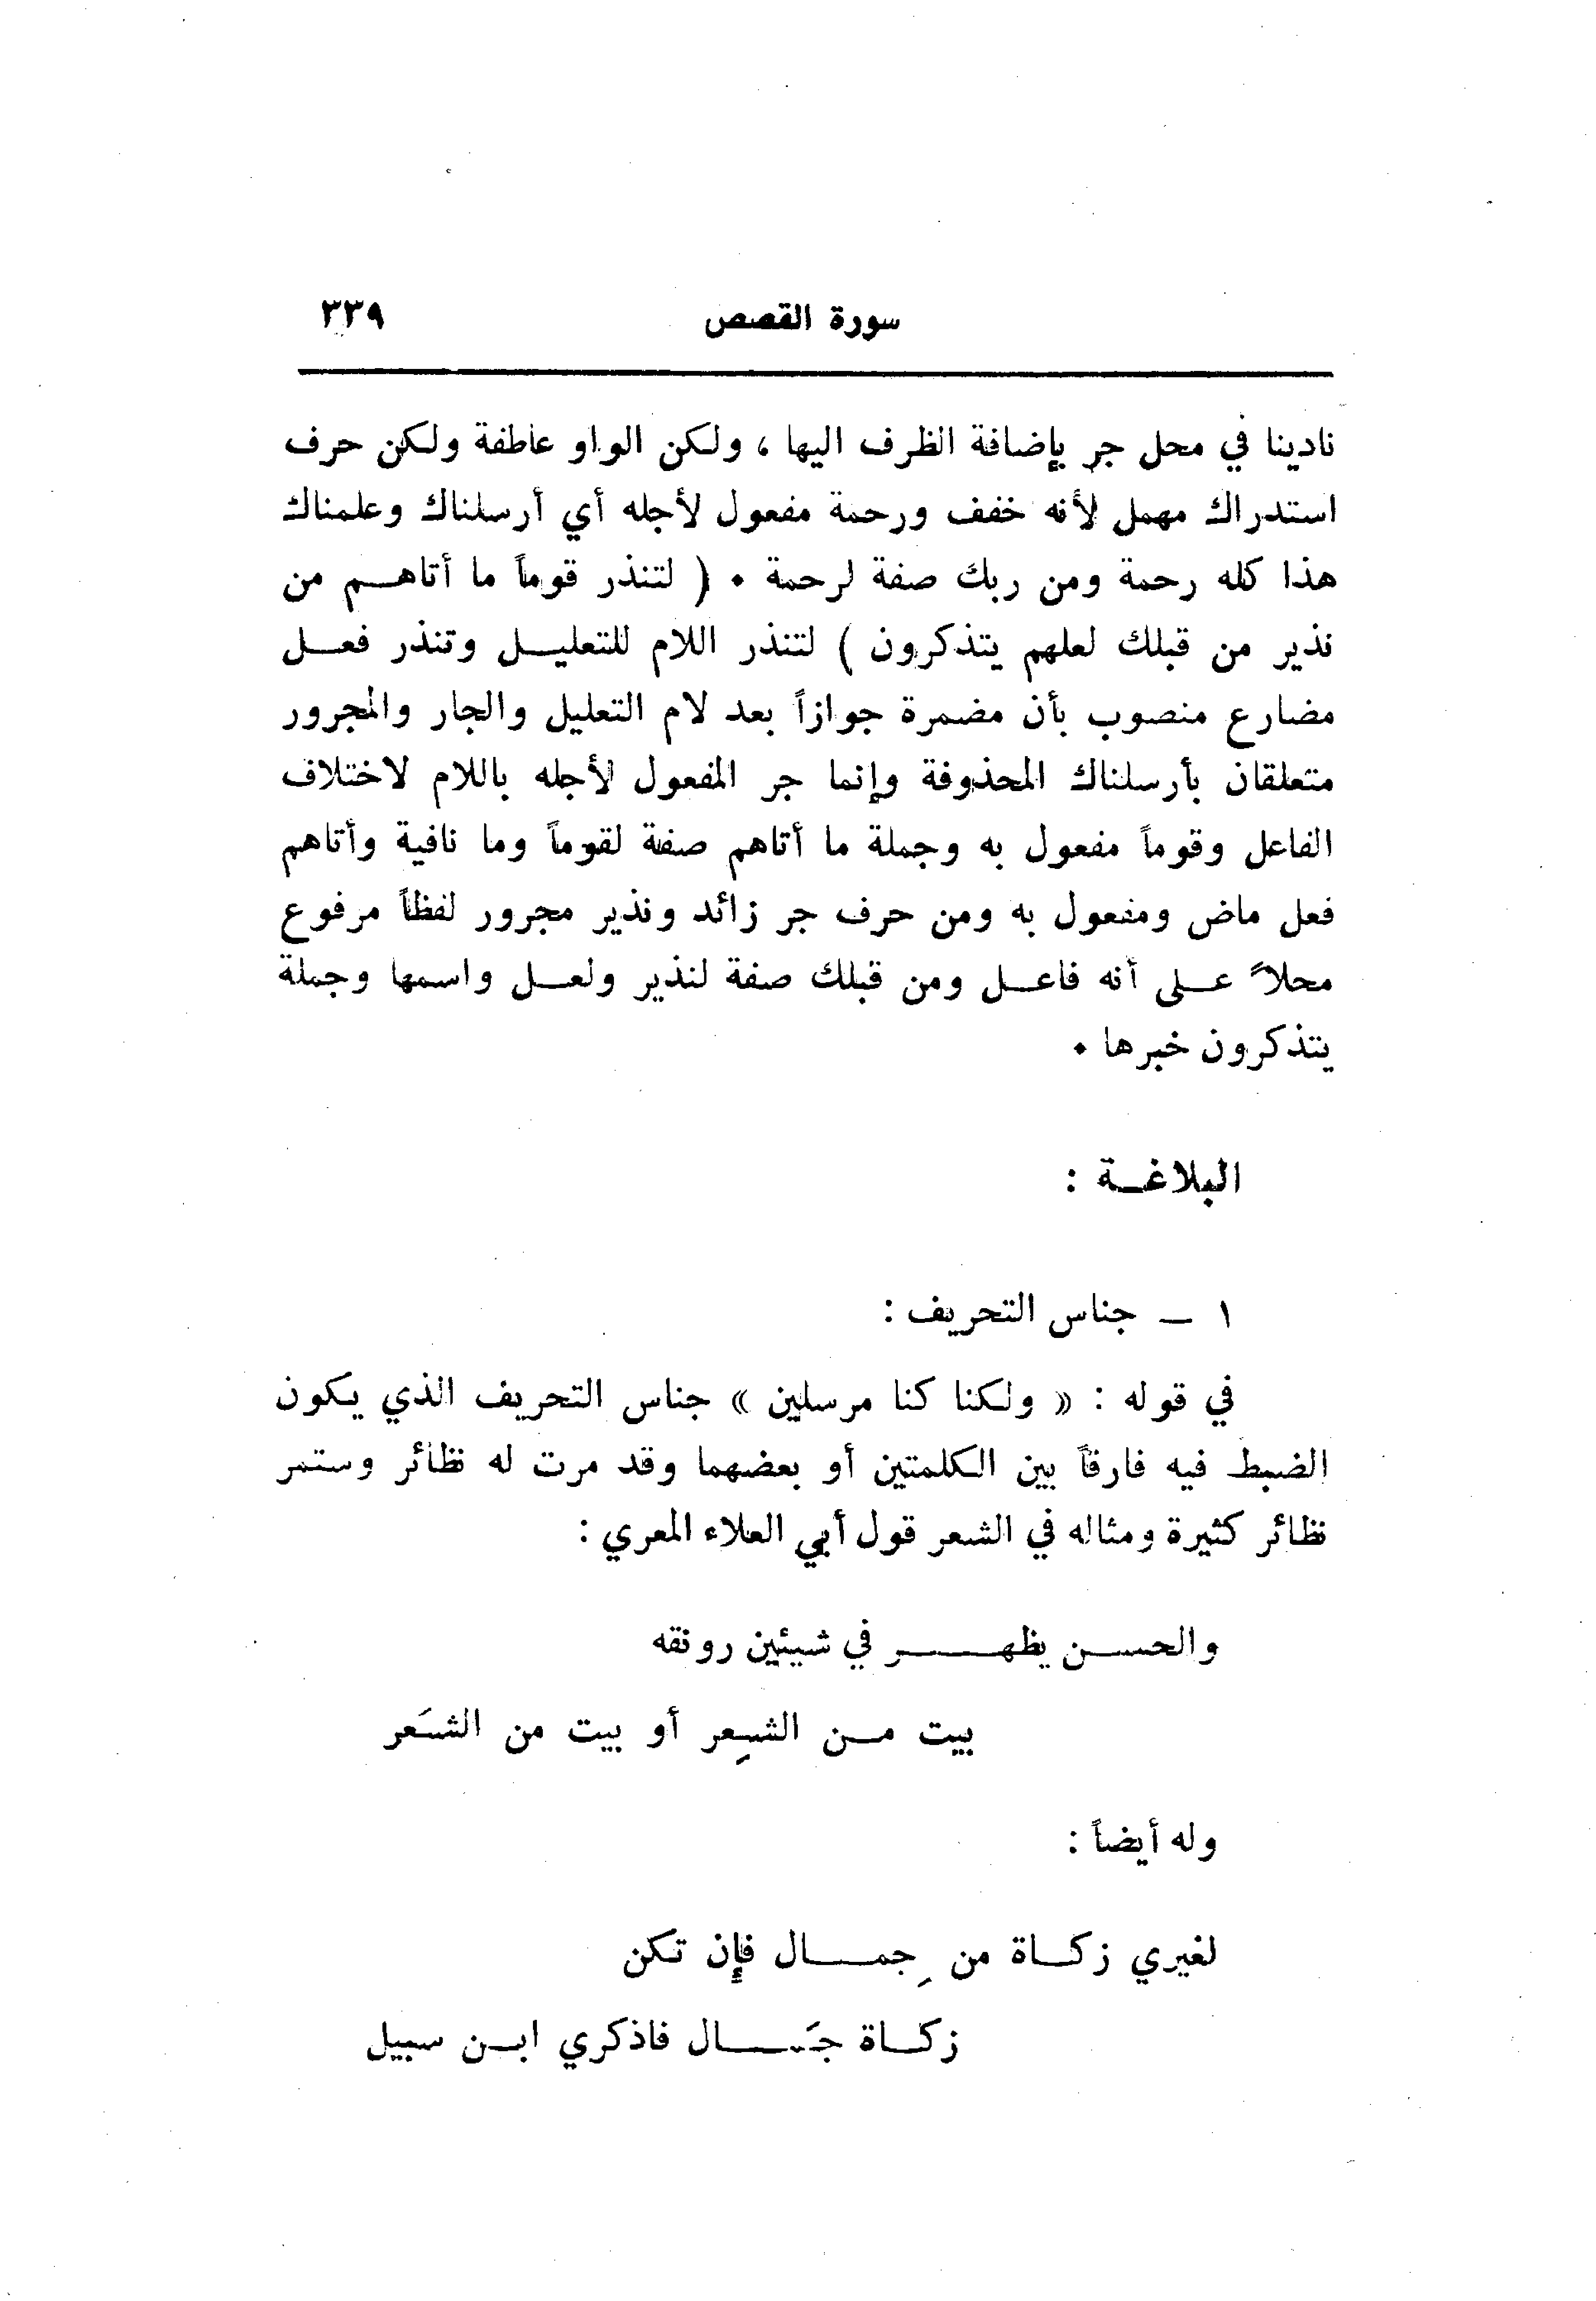 سورة القصص ٣٣٩
نادينا في محل جر بإضافة الظرف اليها ، ولكن الواو عاطفة ولكن حرف
استدراك مهمل لأنه خفف ورحمة مفعول لأجله أي أرسلناك وعلمناك
هذا كله رحمة ومن ربك صفة لرحمة . ( لتنذر قوماً ما أتاهم من
نذير من قبلك لعلهم يتذكرون ) لتنذر اللام للتعليل وتنذر فعل
مضارع منصوب بأن مضمرة جوازاً بعد لام التعليل والجار والمجرور
متعلقان بأرسلناك المحذوفة وإنما جر المفعول لأجله باللام لاختلاف
الفاعل وقوماً مفعول به وجملة ما أتاهم صفة لقوماً وما نافية وأتاهم
فعل ماض ومفعول به ومن حرف جر زائد ونذير مجرور لفظاً مرفوع
محلاً على أنه فاعل ومن قبلك صفة لنذير ولعل واسمها وجملة
يتذكرون خبرها .
البلاغة :
١ — جناس التحريف :
في قوله : « ولكنا كنا مرسلين » جناس التحريف الذي يكون
الضبط فيه فارقاً بين الكلمتين أو بعضهما وقد مرت له نظائر وستمر
نظائر كثيرة ومثاله في الشعر قول أبي العلاء المعري :
والحسن يظهر في شيئين رونقه
بيت من الشِعر أو بيت من الشَعر
وله أيضاً :
لغيري زكاة من جِمال فإن تكن
زكاة جَمال فاذكري ابن سبيل